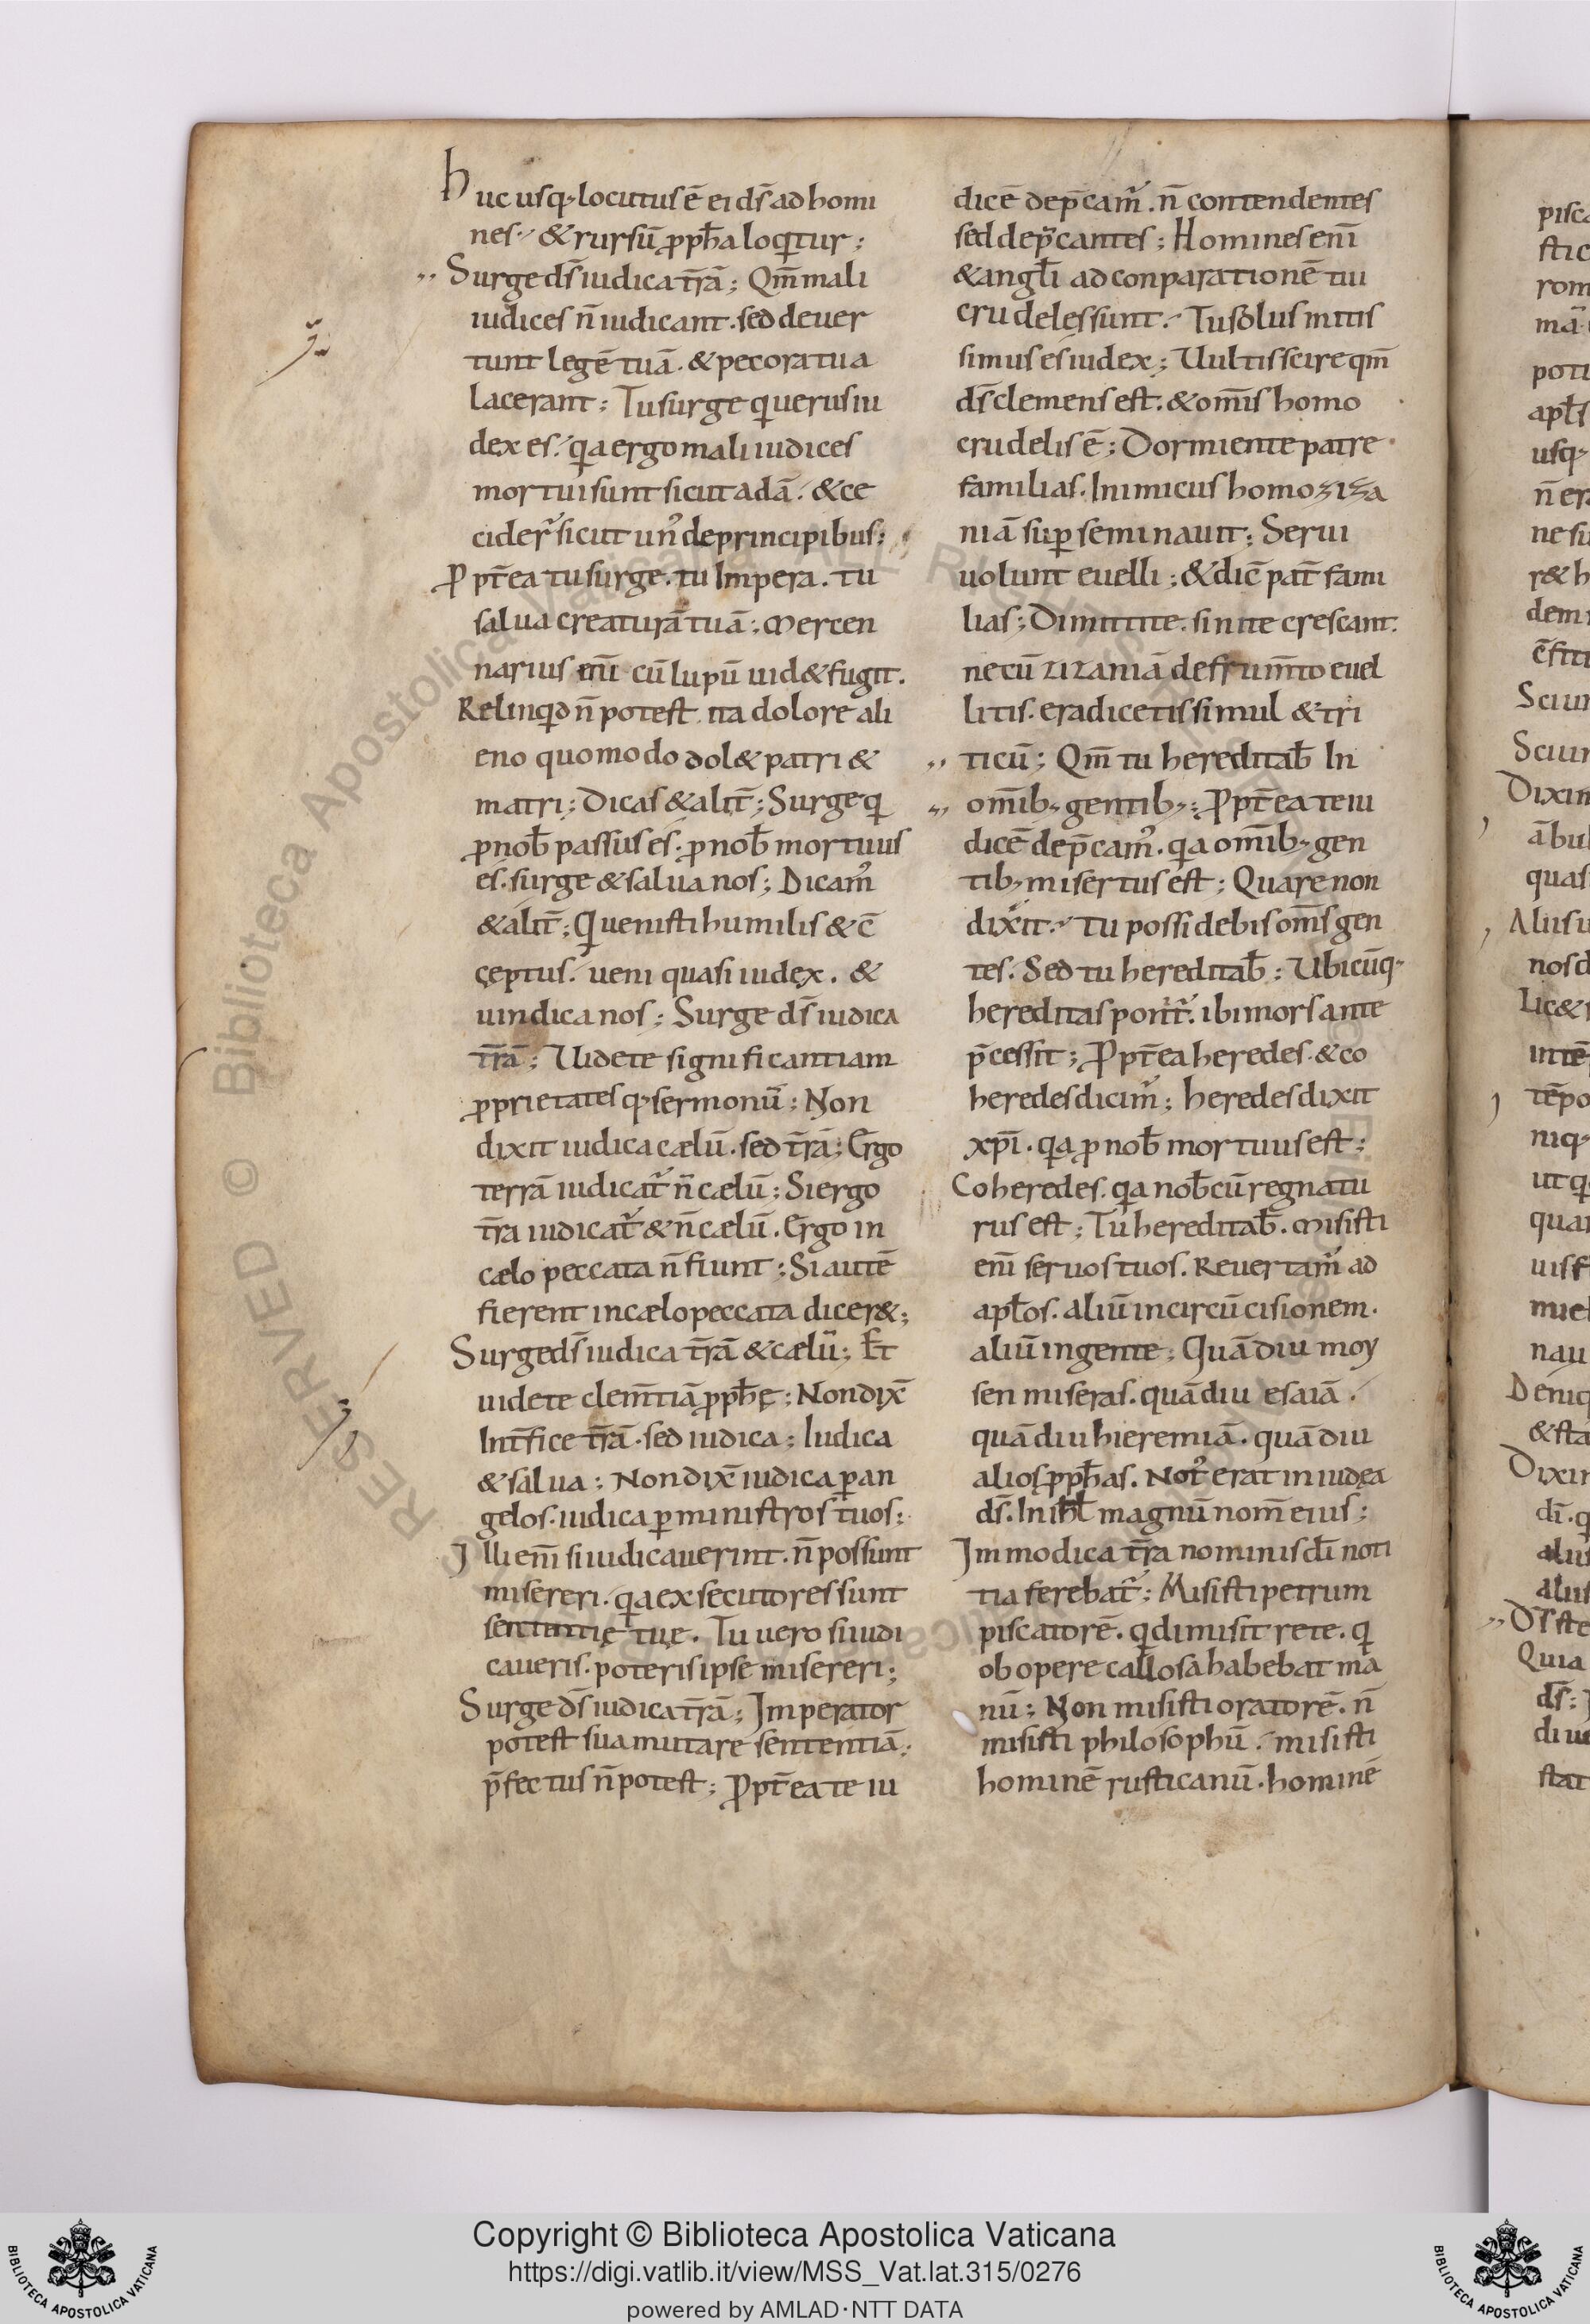 huc usq; locutus ē ei dс̄ ad homi
nes. & rursū ꝓph̄a loqͥtur;
Surge ds̄ iudica tr̄ā; Qm̄ mali
iudices n̄ iudicant. sed deuer
tunt legē tuā. & pecora tua
lacerant; Tu surge qͥ uerus iu
dex es. qͥa ergo mali iudices
mortui sunt sicut adā. & ce
cider̄ sicut un᾽ de principibus;
Ꝓpt̄ea tu surge. tu Impera. tu
salua creaturā tuā; Mercen
narius eni cū lupū uid& fugit.
Relinqͥd n̄ potest ita dolore ali
eno quomodo dol& patri &
matri; Dicas & alit̄; Surge qͥ
ꝓ nob̄ passus es. ꝓ nob̄ mortuus
es. surge & salua nos; Dicam᾽
& alit̄; Qͥ uenisti humilis & c̄
ceptus. ueni quasi iudex. &
uindica nos; Surge ds̄ iudica
tr̄ā; Uidete significantiam
ꝓprietatesq; sermonū; Non
dixit iudica cælū. sed tr̄ā; Ergo
terrā iudicat᾽ n̄ cælū; Si ergo
tr̄a iudicat᾽ & n̄ cælū. Ergo in
cælo peccata n̄ fiunt; Si autē
fierent in cælo peccata dicer&;
Surge ds̄ iudica tr̄ā & cælū; Et
uidete clem̄tiā ꝓph̄ę; Non dix̄
Int̄fice tr̄ā. sed iudica; Iudica
& salua; Non dix̄ iudica ꝑ an
gelos. iudica ꝑ ministros tuos;
Illi eni si iudicauerint. n̄ possunt
misereri. qͥa exsecutores sunt
sententię tuę. Tu uero si iudi
caueris. poteris ipse misereri;
Surge ds̄ iudica tr̄ā; Imperator
potest sua mutare sententiā;
p̄fectus n̄ potest; Ꝓpt̄ea te iu
dicē dep̄cam᾽. n̄ contendentes
sed dep̄cantes; Homines eni
& angl̄i ad conparationē tui
crudeles sunt. Tu solus mitis
simus es iudex; Uultis scire qm̄
ds̄ clemens est. & om̄is homo
crudelis ē; Dormiente patre
familias. Inimicus homo ziza
niā suꝑ seminauit; Serui
uolunt euelli; & dic̄ pat̄ fami
lias; Dimittite. sinite crescant.
ne cū zizaniā de frum̄to euel
litis. eradicetis simul & tri
ticū; Qm̄ tu hereditab̄ In
om̄ib; gentib;; Ꝓpt̄ea te iu
dicē dep̄cam᾽. qͥa om̄ib; gen
tib; misertus est; Quare non
dixit. Tu possidebis om̄s gen
tes. Sed tu hereditab̄; Ubicūq;
hereditas ponit᾽. ibi mors ante
p̄cessit; Ꝓpt̄ea heredes. & co
heredes dicim᾽; heredes dixit
xp̄i. qͥa ꝓ nob̄ mortuus est;
Coheredes. qͥa nob̄cū regnatu
rus est; Tu hereditab̄. Misisti
eni seruos tuos. Reuertam᾽ ad
apl̄os. aliū in circūcisionem.
aliū in gente; Quādiu moy
sen miseras. quādiu esaiā.
quādiu hieremiā. quādiu
alios ꝓph̄as. Not᾽ erat in iudęa
ds̄. In ihl̄ magnū nom̄ eius;
Immodica tr̄a nominis dī noti
tia ferebat᾽; Misisti petrum
piscatorē. qͥ dimisit rete. qͥ
ob opere callosa habebat ma
nū; Non misisti oratorē. n̄
misisti philosophū. misisti
hominē rusticanū. hominē
Copyright © Biblioteca Apostolica Vaticana
https://digi.vatlib.it/view/MSS_Vat.lat.315/0276
powered by AMLAD·NTT DATA
BIBLIOTECA APOSTOLICA VATICANA
BIBLIOTECA APOSTOLICA VATICANA